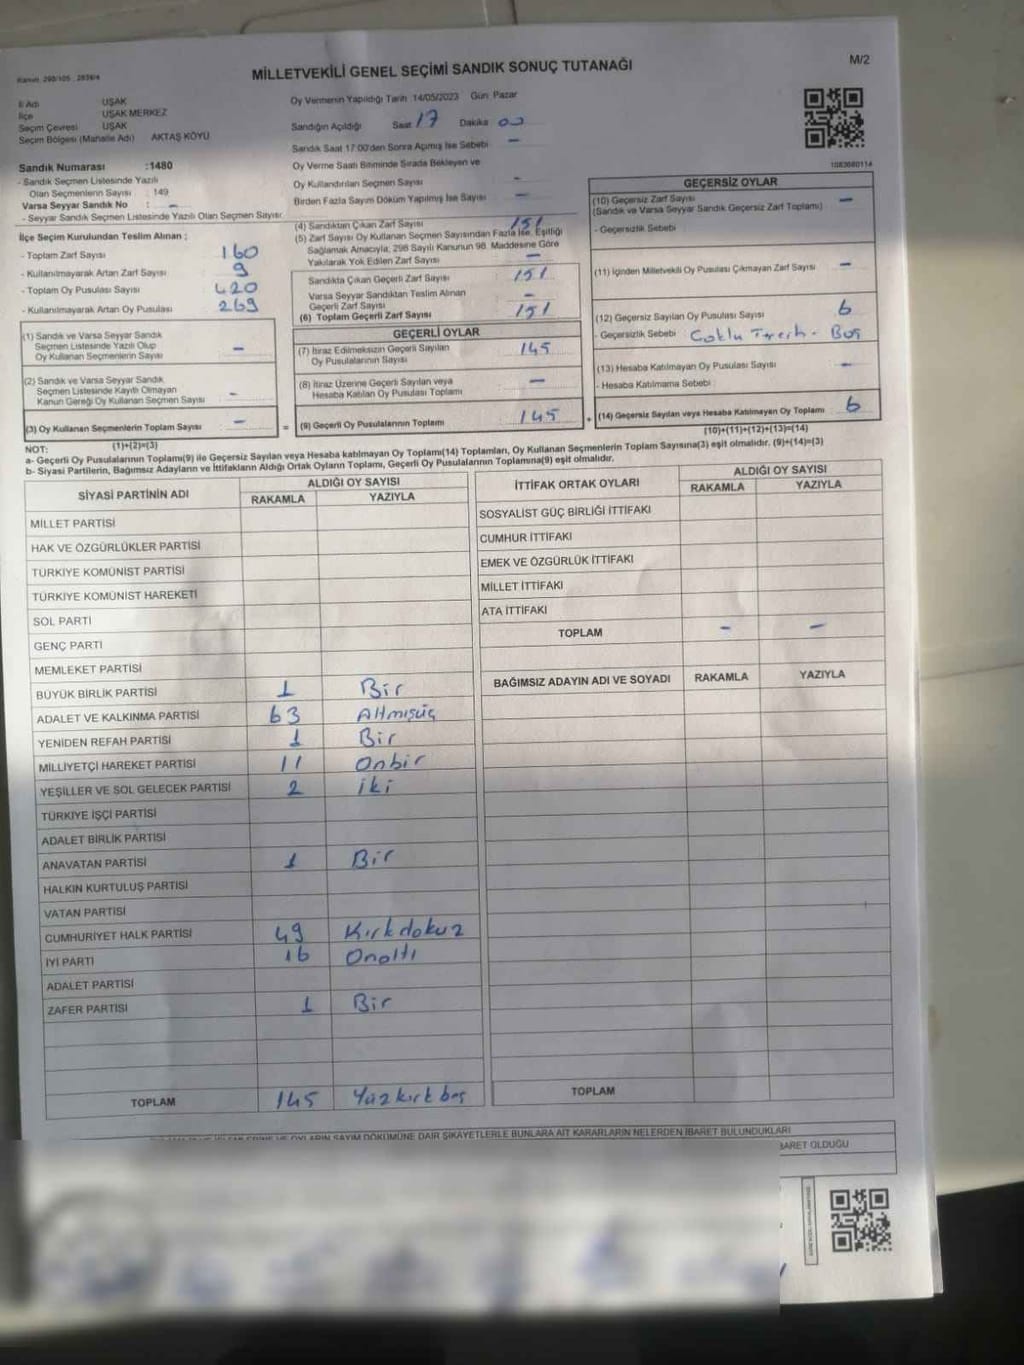 Kanun: 298/105 , 2839/4
MİLLETVEKİLİ GENEL SEÇİMİ SANDIK SONUÇ TUTANAĞI
M/2
İl Adı UŞAK
İlçe UŞAK MERKEZ
Seçim Çevresi UŞAK
Seçim Bölgesi (Mahalle Adı) AKTAŞ KÖYÜ
Oy Vermenin Yapıldığı Tarih 14/05/2023 Gün: Pazar
Sandığın Açıldığı Saat 17 Dakika 00
Sandık Saat 17:00'den Sonra Açılmış İse Sebebi -
Oy Verme Saati Bitiminde Sırada Bekleyen ve
Oy Kullandırılan Seçmen Sayısı -
Birden Fazla Sayım Döküm Yapılmış İse Sayısı -
1083680114
Sandık Numarası :1480
- Sandık Seçmen Listesinde Yazılı
Olan Seçmenlerin Sayısı : 149
Varsa Seyyar Sandık No : -
- Seyyar Sandık Seçmen Listesinde Yazılı Olan Seçmen Sayısı:
İlçe Seçim Kurulundan Teslim Alınan ;
- Toplam Zarf Sayısı 160
- Kullanılmayarak Artan Zarf Sayısı 9
- Toplam Oy Pusulası Sayısı 420
- Kullanılmayarak Artan Oy Pusulası 269
(1) Sandık ve Varsa Seyyar Sandık
Seçmen Listesinde Yazılı Olup
Oy Kullanan Seçmenlerin Sayısı -
(2) Sandık ve Varsa Seyyar Sandık
Seçmen Listesinde Kayıtlı Olmayan
Kanun Gereği Oy Kullanan Seçmen Sayısı -
(3) Oy Kullanan Seçmenlerin Toplam Sayısı -
(1)+(2)=(3)
(4) Sandıktan Çıkan Zarf Sayısı 151
(5) Zarf Sayısı Oy Kullanan Seçmen Sayısından Fazla İse, Eşitliği
Sağlamak Amacıyla; 298 Sayılı Kanunun 98. Maddesine Göre
Yakılarak Yok Edilen Zarf Sayısı -
Sandıkta Çıkan Geçerli Zarf Sayısı 151
Varsa Seyyar Sandıktan Teslim Alınan
Geçerli Zarf Sayısı -
(6) Toplam Geçerli Zarf Sayısı 151
GEÇERLİ OYLAR
(7) İtiraz Edilmeksizin Geçerli Sayılan
Oy Pusulalarının Sayısı 145
(8) İtiraz Üzerine Geçerli Sayılan veya
Hesaba Katılan Oy Pusulası Toplamı -
= (9) Geçerli Oy Pusulalarının Toplamı 145
GEÇERSİZ OYLAR
(10) Geçersiz Zarf Sayısı
(Sandık ve Varsa Seyyar Sandık Geçersiz Zarf Toplamı) -
- Geçersizlik Sebebi
(11) İçinden Milletvekili Oy Pusulası Çıkmayan Zarf Sayısı -
(12) Geçersiz Sayılan Oy Pusulası Sayısı 6
- Geçersizlik Sebebi Çoklu Tercih - Boş
(13) Hesaba Katılmayan Oy Pusulası Sayısı -
- Hesaba Katılmama Sebebi
+ (14) Geçersiz Sayılan veya Hesaba Katılmayan Oy Toplamı 6
(10)+(11)+(12)+(13)=(14)
NOT:
a- Geçerli Oy Pusulasının Toplamı(9) ile Geçersiz Sayılan veya Hesaba katılmayan Oy Toplamı(14) Toplamları, Oy Kullanan Seçmenlerin Toplam Sayısına(3) eşit olmalıdır. (9)+(14)=(3)
b- Siyasi Partilerin, Bağımsız Adayların ve İttifakların Aldığı Ortak Oyların Toplamı, Geçerli Oy Pusulalarının Toplamına(9) eşit olmalıdır.
SİYASİ PARTİNİN ADI ALDIĞI OY SAYISI
RAKAMLA YAZIYLA
MİLLET PARTİSİ
HAK VE ÖZGÜRLÜKLER PARTİSİ
TÜRKİYE KOMÜNİST PARTİSİ
TÜRKİYE KOMÜNİST HAREKETİ
SOL PARTİ
GENÇ PARTİ
MEMLEKET PARTİSİ
BÜYÜK BİRLİK PARTİSİ 1 Bir
ADALET VE KALKINMA PARTİSİ 63 Altmışüç
YENİDEN REFAH PARTİSİ 1 Bir
MİLLİYETÇİ HAREKET PARTİSİ 11 Onbir
YEŞİLLER VE SOL GELECEK PARTİSİ 2 iki
TÜRKİYE İŞÇİ PARTİSİ
ADALET BİRLİK PARTİSİ
ANAVATAN PARTİSİ 1 Bir
HALKIN KURTULUŞ PARTİSİ
VATAN PARTİSİ
CUMHURİYET HALK PARTİSİ 49 Kırkdokuz
İYİ PARTİ 16 Onaltı
ADALET PARTİSİ
ZAFER PARTİSİ 1 Bir
TOPLAM 145 Yüzkırkbeş
İTTİFAK ORTAK OYLARI ALDIĞI OY SAYISI
RAKAMLA YAZIYLA
SOSYALİST GÜÇ BİRLİĞİ İTTİFAKI
CUMHUR İTTİFAKI
EMEK VE ÖZGÜRLÜK İTTİFAKI
MİLLET İTTİFAKI
ATA İTTİFAKI
TOPLAM - -
BAĞIMSIZ ADAYIN ADI VE SOYADI RAKAMLA YAZIYLA
TOPLAM
OYLARIN SAYIM DÖKÜMÜNE DAİR ŞİKAYETLERLE BUNLARA AİT KARARLARIN NELERDEN İBARET BULUNDUKLARI
BARET OLDUĞU